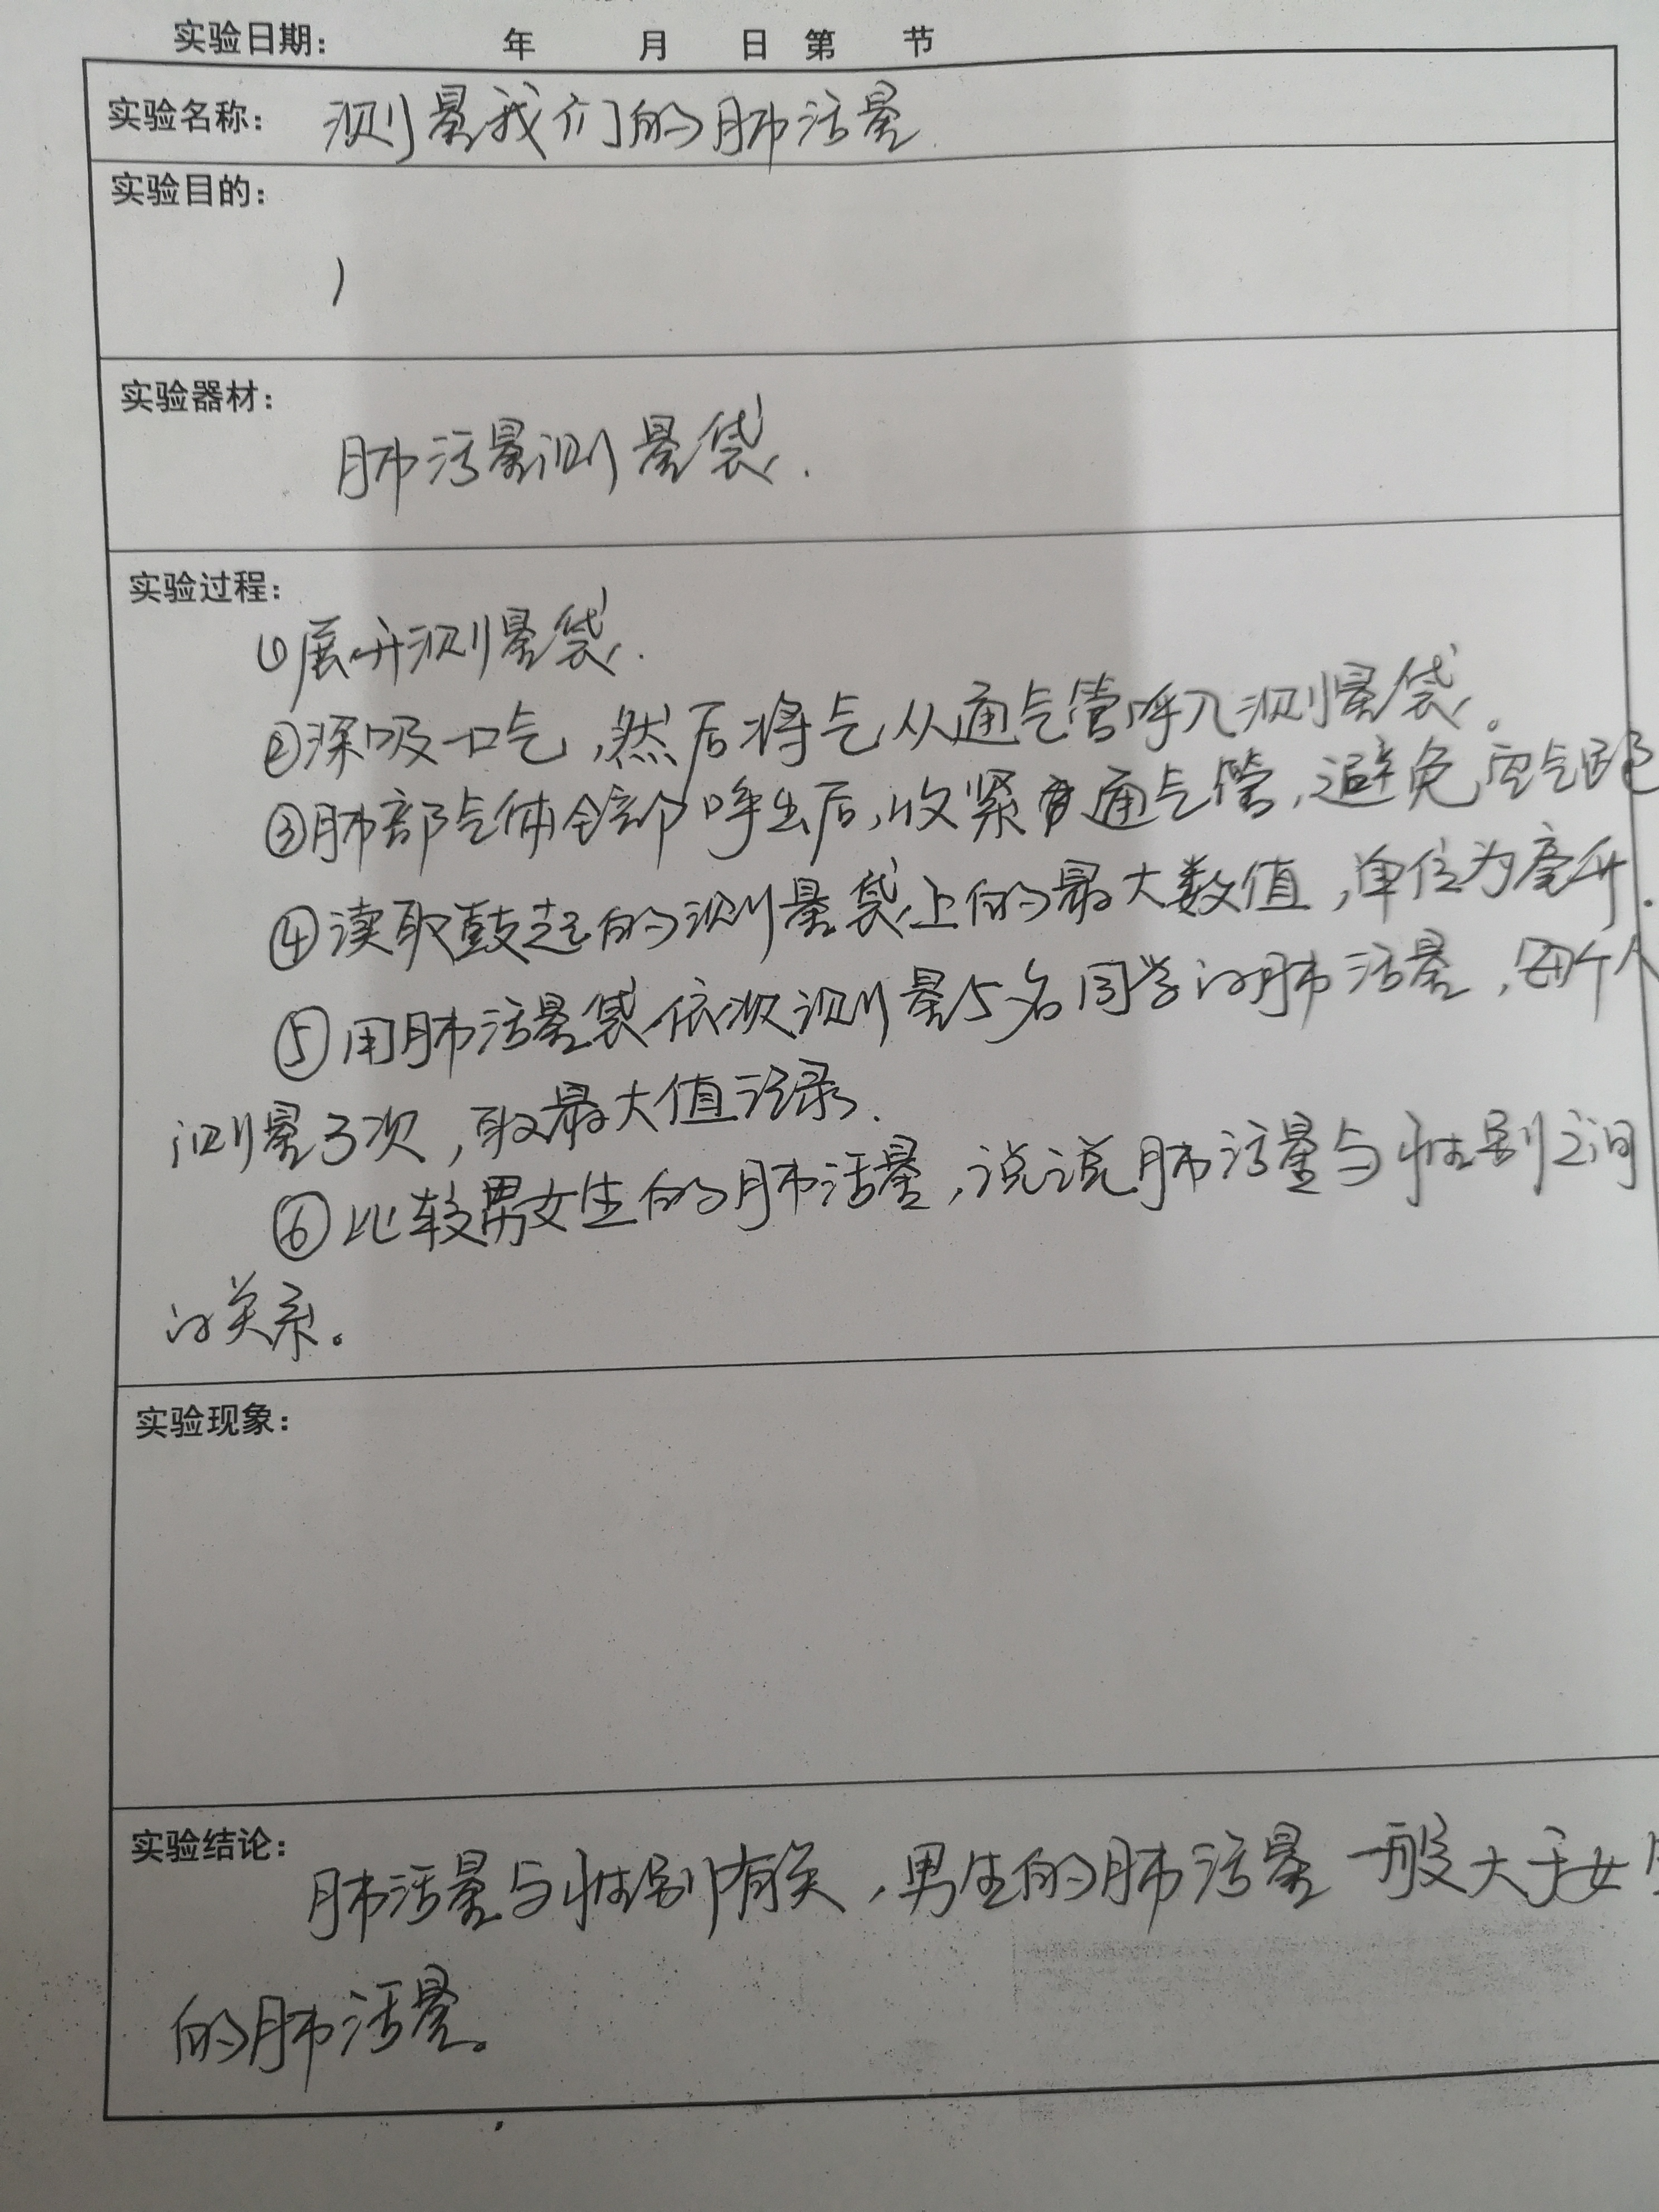 实验日期： 年 月 日 第 节
实验名称： 测量我们的肺活量.
实验目的：
实验器材：
肺活量测量袋.
实验过程：
①展开测量袋.
②深吸一口气,然后将气从通气管呼入测量袋。
③肺部气体全部呼出后,收紧通气管,避免空气跑
④读取鼓起的测量袋上的最大数值,单位为毫升.
⑤用肺活量袋依次测量5名同学的肺活量,每个人
测量3次,取最大值记录.
⑥比较男女生的肺活量,说说肺活量与性别之间
的关系。
实验现象：
实验结论：
肺活量与性别有关,男生的肺活量一般大于女
的肺活量。